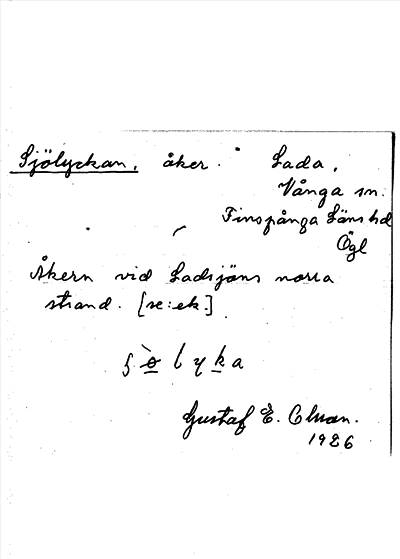 Sjölyckan, åker. Lada,
Vånga sn.
Finspånga Läns hd
Ögl
Åkern vid Ladsjöns norra
strand. [se: ek.]
Gustaf E.
1926